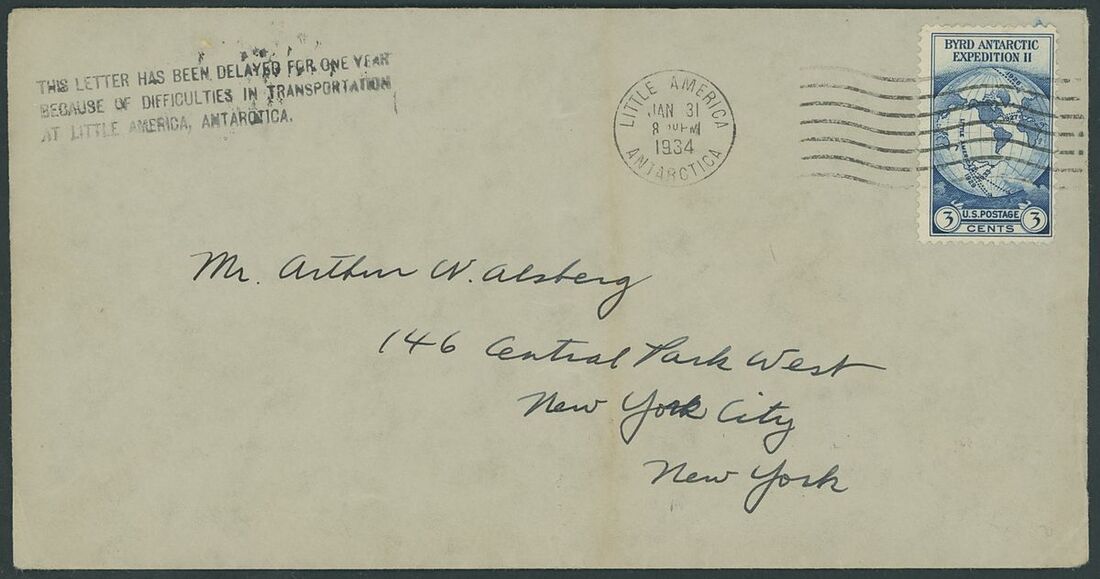 THIS LETTER HAS BEEN DELAYED FOR ONE YEAR
BECAUSE OF DIFFICULTIES IN TRANSPORTATION
AT LITTLE AMERICA, ANTARCTICA.
LITTLE AMERICA
JAN 31
8 PM
1934
ANTARCTICA
BYRD ANTARCTIC
EXPEDITION II
LITTLE AMERICA
3 U.S. POSTAGE 3
CENTS
Mr. Arthur W. Alsberg
146 Central Park West
New York City
New York